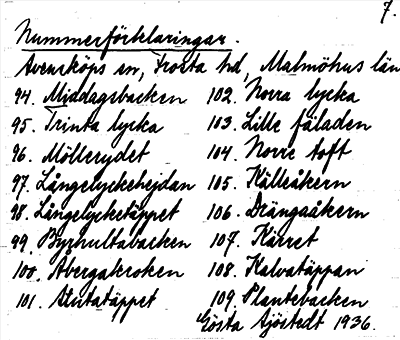 7.
Nummerförklaringar.
Avensköps sn, Frosta hd, Malmöhus län
94. Middagsbacken 102. Norra lycka
95. Trinta lycka 103. Lille fäladen
96. Möllerydet 104. Norre toft
97. Långelyckehejdan 105. Källeåkern
98. Långelycketäppet 106. Drängaåkern
99. Byrhultabacken 107. Kärret
100. Åbergakroken 108. Kalvatäppan
101. Atutatäppet 109. Plantebacken
Gösta Sjöstedt 1936.